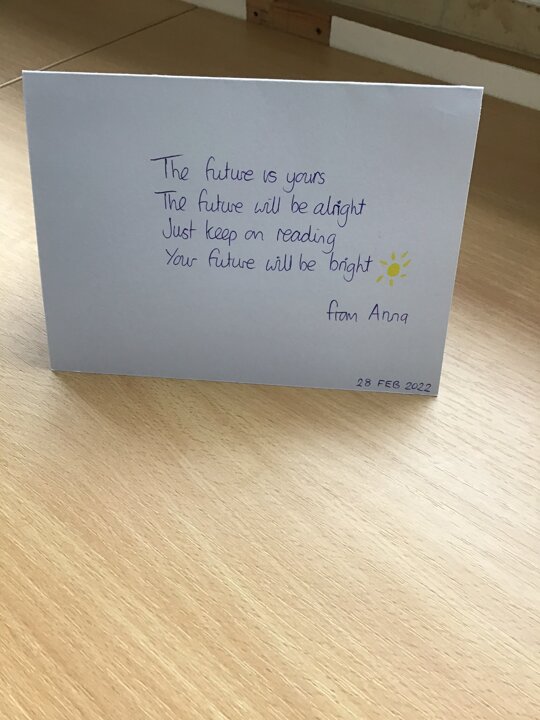 The future is yours
The future will be alright
Just keep on reading
Your future will be bright
from Anna
28 FEB 2022